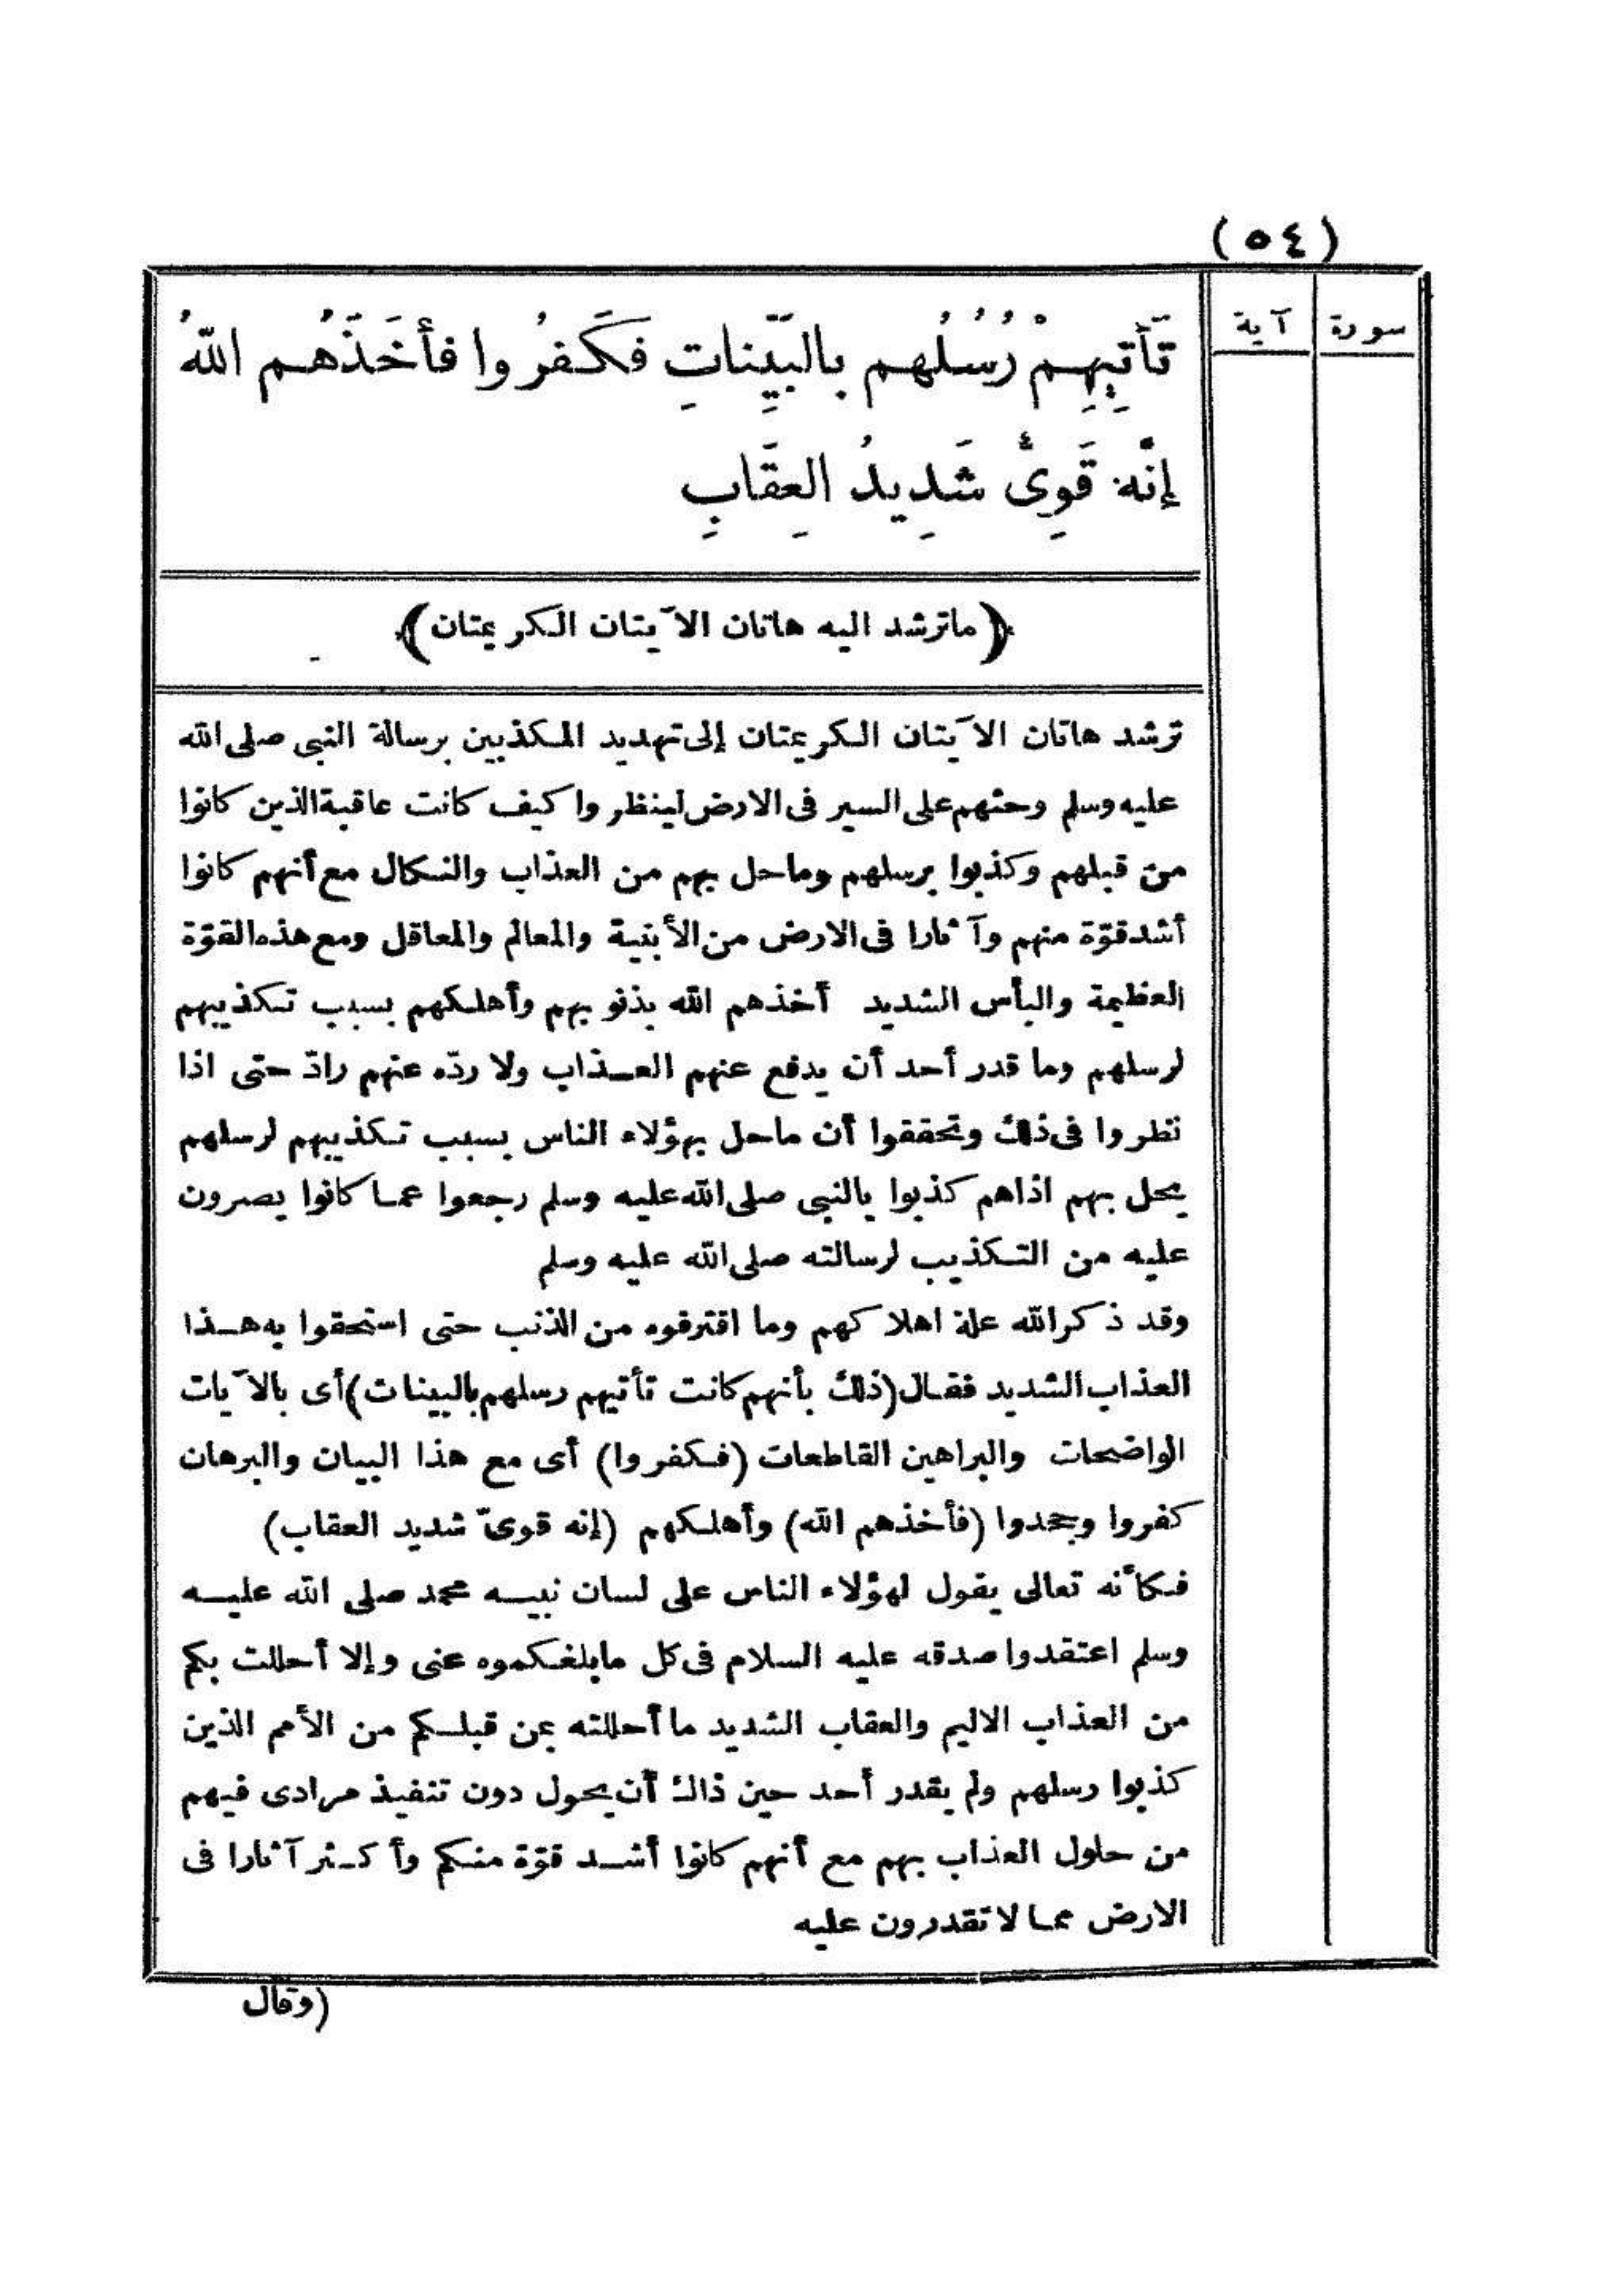 (٥٤)
سورة آية
تَأتِيهِمْ رُسُلُهم بالبَيِّناتِ فكَفرُوا فأخَذَهُم اللّهُ
إنَّه قَوِىٌّ شَدِيدُ العِقَابِ
(ماترشد اليه هاتان الآيتان الكريمتان)
ترشد هاتان الآيتان الكريمتان إلى تهديد المكذبين برسالة النبى صلى الله
عليه وسلم وحثهم على السير فى الارض لينظروا كيف كانت عاقبة الذين كانوا
من قبلهم وكذبوا برسلهم وماحل بهم من العذاب والنكال مع أنهم كانوا
أشد قوّة منهم وآثارا فى الارض من الأبنية والمعالم والمعاقل ومع هذه القوّة
العظيمة والبأس الشديد أخذهم الله بذنوبهم وأهلكهم بسبب تكذيبهم
لرسلهم وما قدر أحد أن يدفع عنهم العذاب ولا ردّه عنهم رادّ حتى اذا
نظروا فى ذلك وتحققوا أن ماحل بهؤلاء الناس بسبب تكذيبهم لرسلهم
يحل بهم اذاهم كذبوا بالنبى صلى الله عليه وسلم رجعوا عما كانوا يصرون
عليه من التكذيب لرسالته صلى الله عليه وسلم
وقد ذكر الله علة اهلاكهم وما اقترفوه من الذنب حتى استحقوا به هذا
العذاب الشديد فقال (ذلك بأنهم كانت تأتيهم رسلهم بالبينات) أى بالآيات
الواضحات والبراهين القاطعات (فكفروا) أى مع هذا البيان والبرهان
كفروا وجحدوا (فأخذهم الله) وأهلكهم (إنه قوىّ شديد العقاب)
فكأنه تعالى يقول لهؤلاء الناس على لسان نبيه محمد صلى الله عليه
وسلم اعتقدوا صدقه عليه السلام فى كل مابلغكموه عنى وإلا أحللت بكم
من العذاب الاليم والعقاب الشديد ما أحللته بمن قبلكم من الأمم الذين
كذبوا رسلهم ولم يقدر أحد حين ذاك أن يحول دون تنفيذ مرادى فيهم
من حلول العذاب بهم مع أنهم كانوا أشد قوّة منكم وأكثر آثارا فى
الارض مما لا تقدرون عليه
(وقال